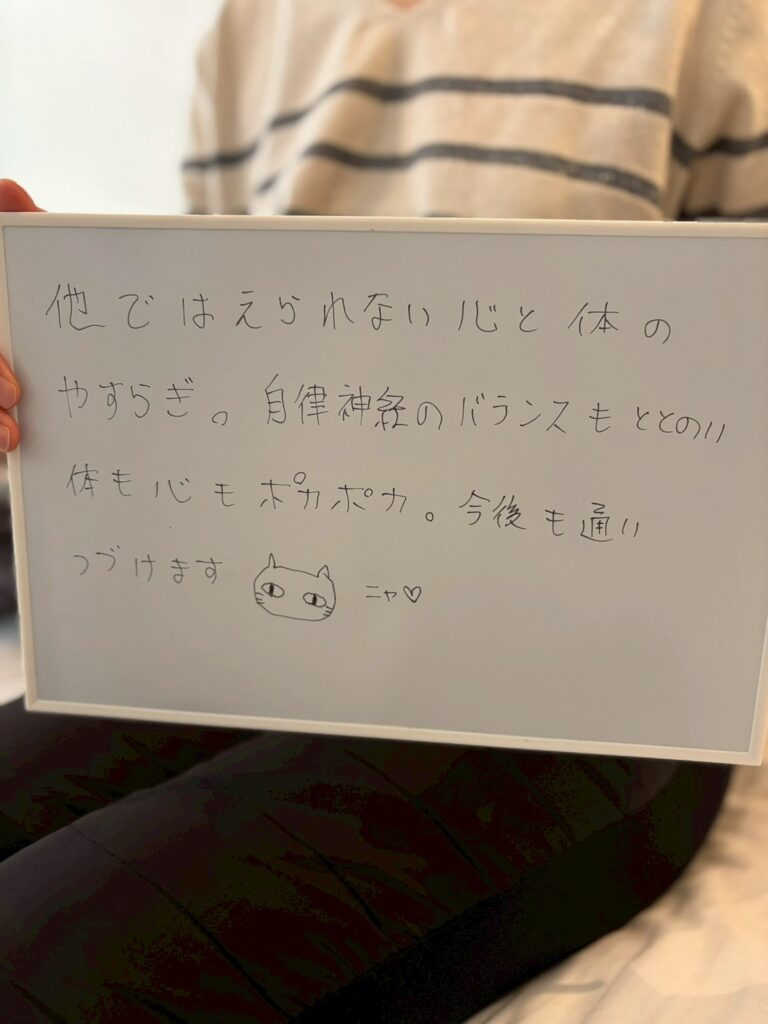 他ではえられない心と体の
やすらぎ。自律神経のバランスもととのい
体も心もポカポカ。今後も通い
つづけます ニャ♡